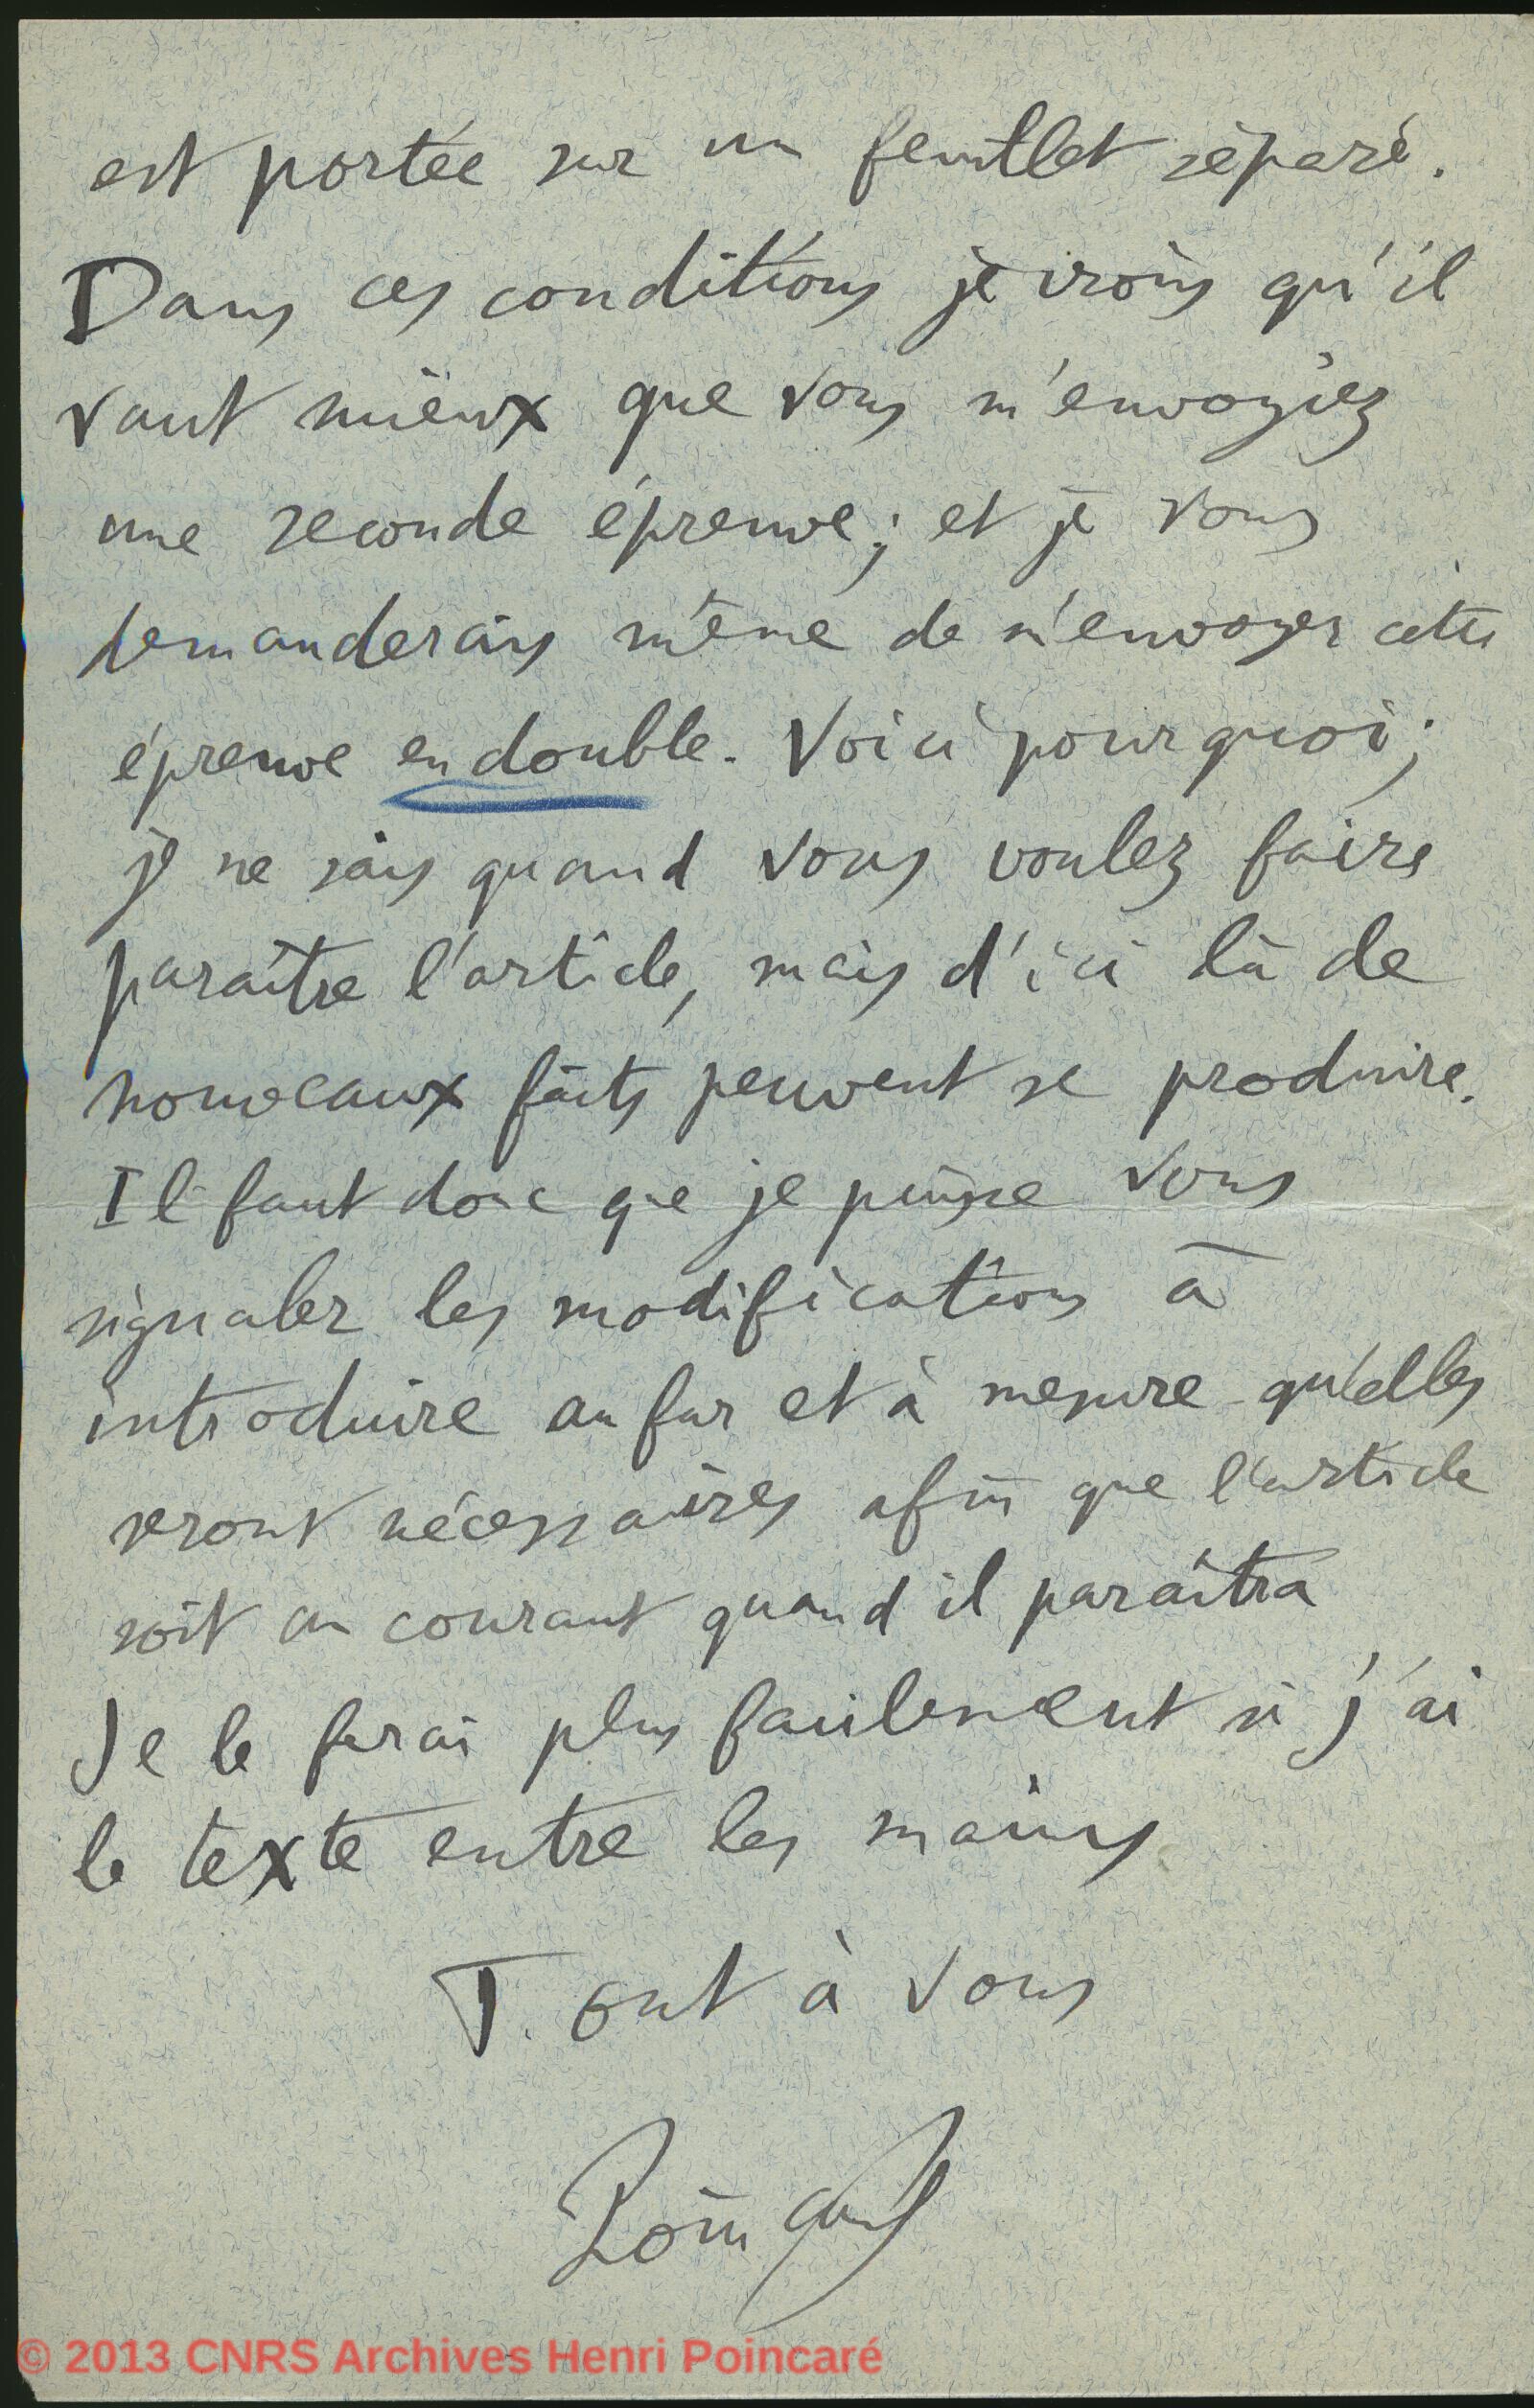 est portée sur un feuillet séparé.
Dans ces conditions je crois qu'il
vaut mieux que vous m'envoyiez
une seconde épreuve; et je vous
demanderais même de m'envoyer cette
épreuve en double. Voici pourquoi;
je ne sais quand vous voulez faire
paraître l'article, mais d'ici là de
nouveaux faits peuvent se produire.
Il faut donc que je puisse vous
signaler les modifications à
introduire au fur et à mesure qu'elles
seront nécessaires afin que l'article
soit au courant quand il paraîtra
Je le ferai plus facilement si j'ai
le texte entre les mains
Tout à vous
Poincaré
© 2013 CNRS Archives Henri Poincaré